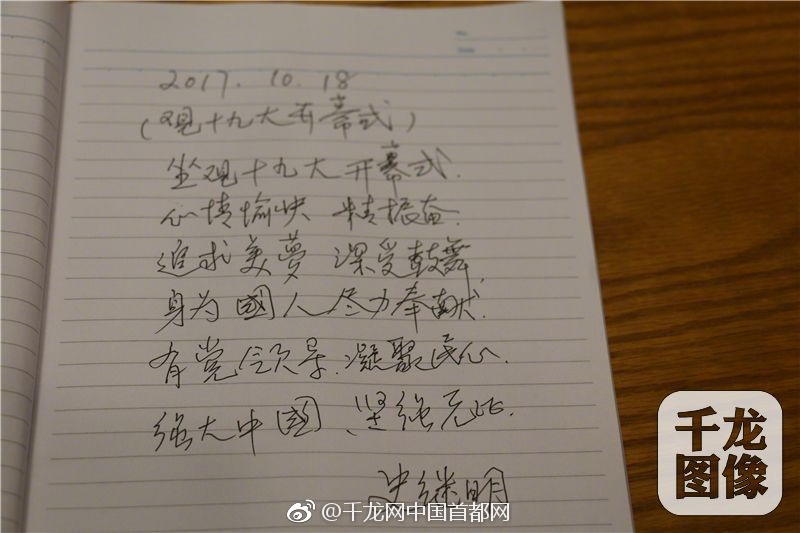 2017. 10. 18
(观十九大开幕式)
坐观十九大开幕式.
心情愉快 精振奋.
追求美夢 深受鼓舞,
身为國人尽力奉献.
有党领导.凝聚民心.
强大中國、坚强无比.
史继明
千龙
图像
@千龙网中国首都网